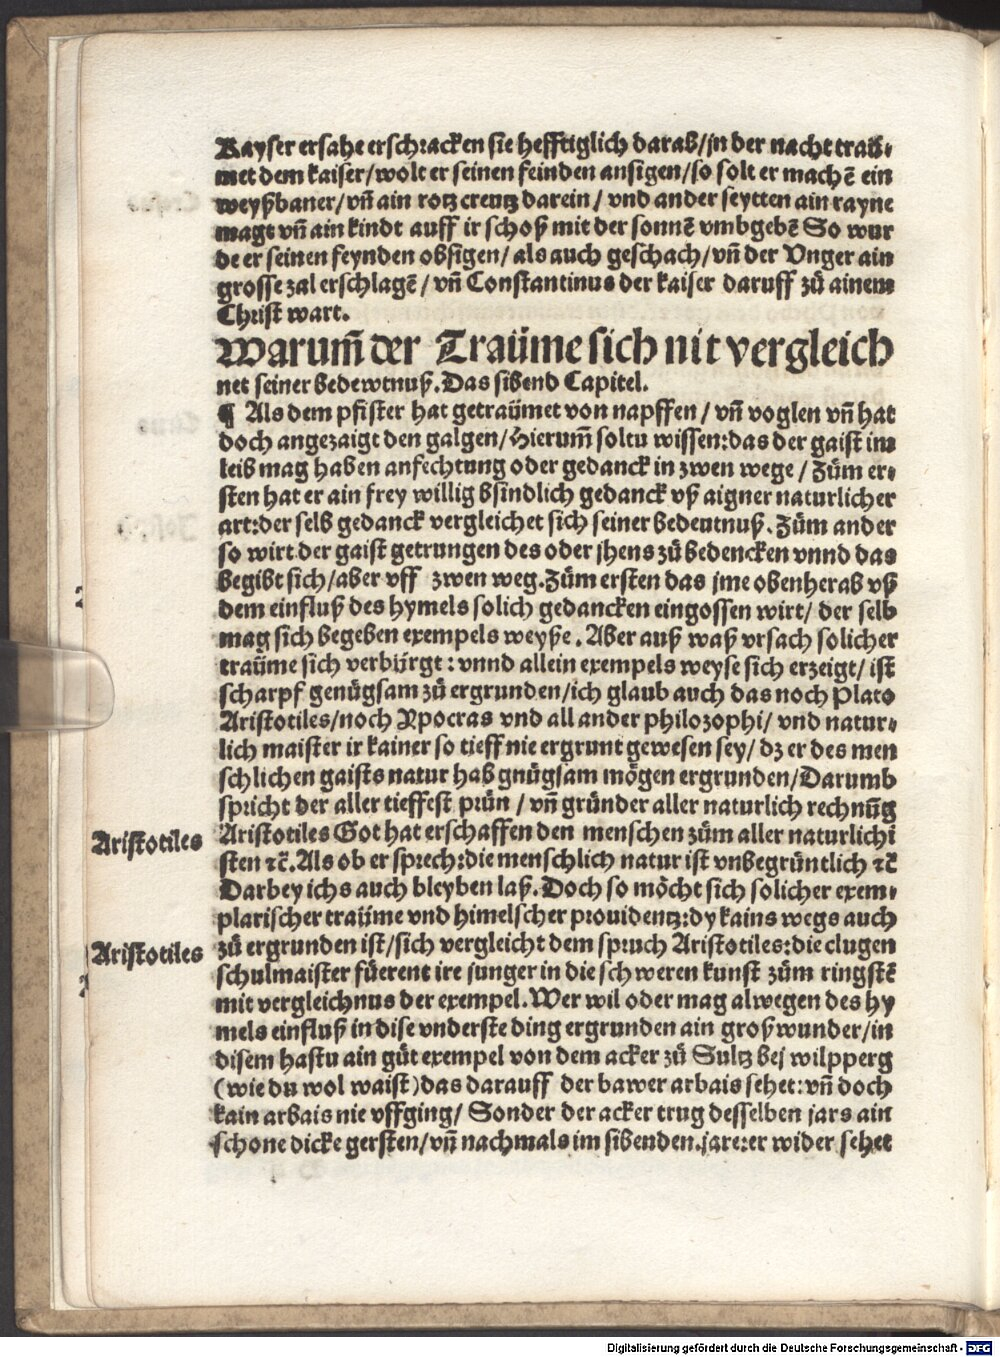 Kayser ersahe erschracken sie hefftiglich darab/jn der nacht traü⸗
met dem kaiser/wolt er seinen feinden ansigen/so solt er machē ein
weyßbaner/vn̄ ain rotz creutz darein/ vnd ander seytten ain rayne
magt vn̄ ain kindt auff ir schoß mit der sonnē vmbgebē So wur
de er seinen feynden obsigen/ als auch geschach/vn̄ der Vnger ain
grosse zal erschlagē/ vn̄ Constantinus der kaiser daruff zů ainem
Christ wart.
Warum̄ der Traüme sich nit vergleich
net seiner bedewtnuß. Das sibend Capitel.
¶ Als dem pfister hat getraümet von napffen/ vn̄ voglen vn̄ hat
doch angezaigt den galgen/Hierum̄ soltu wissen:das der gaist im
leib mag haben anfechtung oder gedanck in zwen wege/ Zům er⸗
sten hat er ain frey willig bsindlich gedanck vß aigner naturlicher
art:der selb gedanck vergleichet sich seiner bedeutnuß. Zům ander
so wirt der gaist getrungen des oder jhens zů bedencken vnnd das
begibt sich/aber vff zwen weg. Zům ersten das jme obenherab vß
dem einfluß des hymels solich gedancken eingossen wirt/ der selb
mag sich begeben exempels weyße. Aber auß waß vrsach solicher
traüme sich verbürgt: vnnd allein exempels weyse sich erzeigt/ ist
scharpf genůgsam zů ergrunden/ich glaub auch das noch Plato
Aristotiles/noch Ypocras vnd all ander philozophi/ vnd natur⸗
lich maister ir kainer so tieff nie ergrunt gewesen sey/ dz er des men
schlichen gaists natur hab gnůgsam mögen ergrunden/Darumb
spricht der aller tieffest prün/ vn̄ gründer aller naturlich rechnūg
Aristotiles Got hat erschaffen den menschen zům aller naturlichi
sten ⁊c̄. Als ob er sprech:die menschlich natur ist vnbegrüntlich ⁊c̄
Darbey ichs auch bleyben laß. Doch so möcht sich solicher exem⸗
plarischer traüme vnd himelscher prouidentz:dy kains wegs auch
zů ergrunden ist/sich vergleicht dem spruch Aristotiles:die clugen
schulmaister füerent ire junger in die schweren kunst zům ringstē
mit vergleichnus der exempel. Wer wil oder mag alwegen des hy
mels einfluß in dise vnderste ding ergrunden ain groß wunder/in
disem hastu ain gůt exempel von dem acker zů Sultz bej wilpperg
(wie du wol waist)das darauff der bawer arbais sehet:vn̄ doch
kain arbais nie vffging/ Sonder der acker trug desselben jars ain
schone dicke gersten/vn̄ nachmals im sibenden.jare:er wider sehet
Aristotiles
Aristotiles
Digitalisierung gefördert durch die Deutsche Forschungsgemeinschaft - DFG